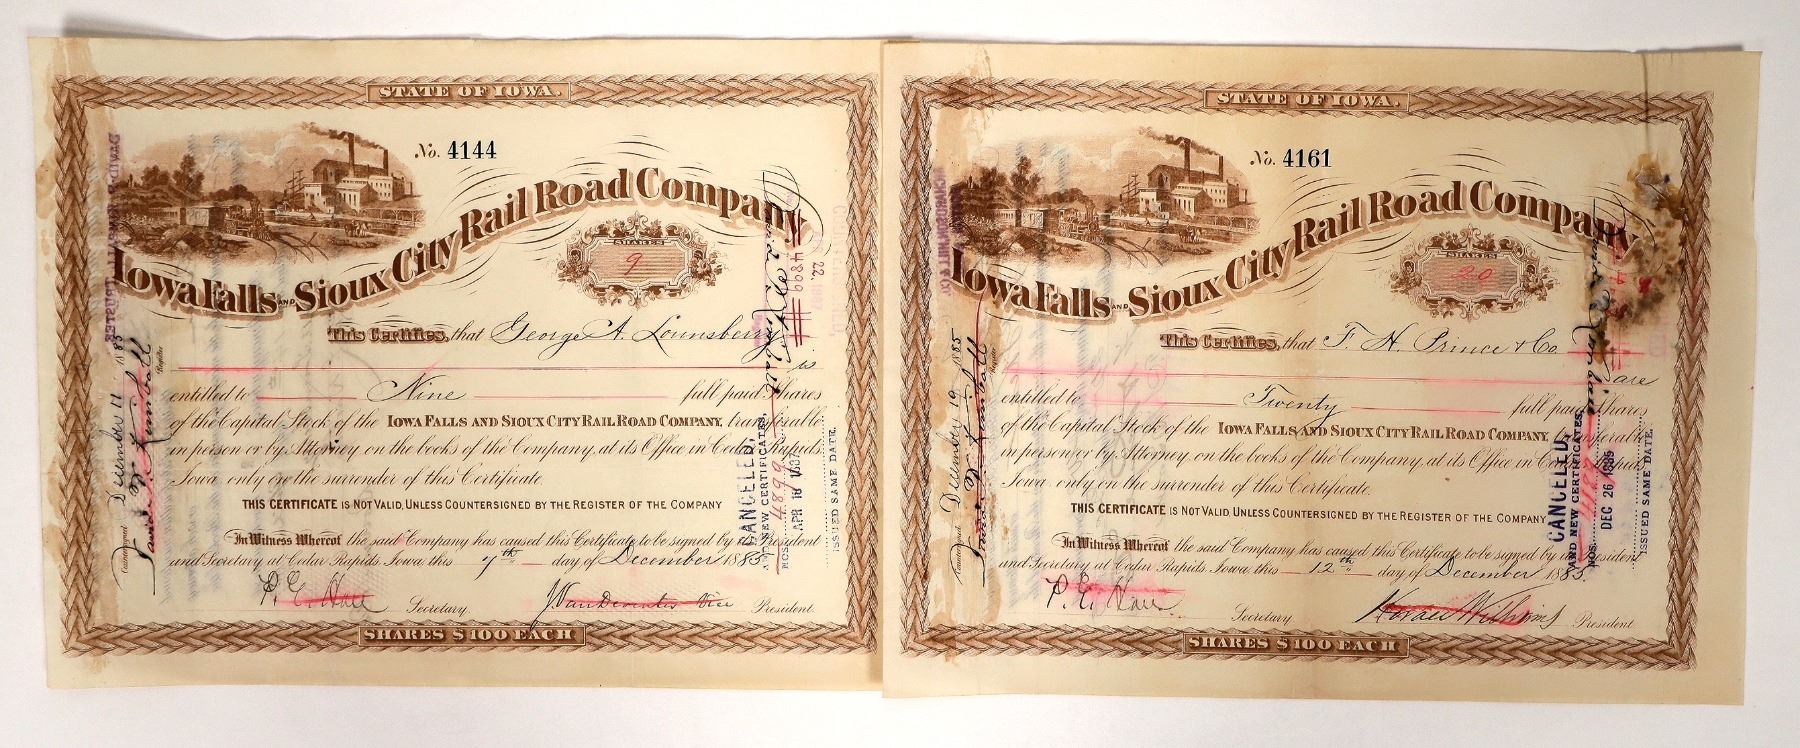 STATE OF IOWA.
No. 4144
Iowa Falls AND Sioux City Rail Road Company
SHARES
9
This Certifies, that George A. Lounsbery
is
entitled to Nine full paid Shares
of the Capital Stock of the IOWA FALLS AND SIOUX CITY RAIL ROAD COMPANY, transferable
in person or by Attorney on the books of the Company, at its Office in Cedar Rapids
Iowa only on the surrender of this Certificate.
THIS CERTIFICATE IS NOT VALID, UNLESS COUNTERSIGNED BY THE REGISTER OF THE COMPANY
In Witness Whereof the said Company has caused this Certificate to be signed by its President
and Secretary at Cedar Rapids, Iowa this 7th day of December 1885
P. E. Hall Secretary. J Van Deventer Vice President.
SHARES $100 EACH
Countersigned December 11 1885
Register
TRUSTEE
CANCELED,
AND NEW CERTIFICATES,
NOS. 4899 APR 18 1887
ISSUED SAME DATE.
STATE OF IOWA.
No. 4161
Iowa Falls AND Sioux City Rail Road Company
SHARES
20
This Certifies, that F. H. Prince & Co.
are
entitled to Twenty full paid Shares
of the Capital Stock of the IOWA FALLS AND SIOUX CITY RAIL ROAD COMPANY, transferable
in person or by Attorney on the books of the Company, at its Office in Cedar Rapids
Iowa only on the surrender of this Certificate.
THIS CERTIFICATE IS NOT VALID, UNLESS COUNTERSIGNED BY THE REGISTER OF THE COMPANY
In Witness Whereof the said Company has caused this Certificate to be signed by its President
and Secretary at Cedar Rapids, Iowa this 12th day of December 1885.
P. E. Hall Secretary. Horace Williams President.
SHARES $100 EACH
Countersigned December 19 1885
Register
CANCELED,
AND NEW CERTIFICATES,
NOS. DEC 26 1885
ISSUED SAME DATE.